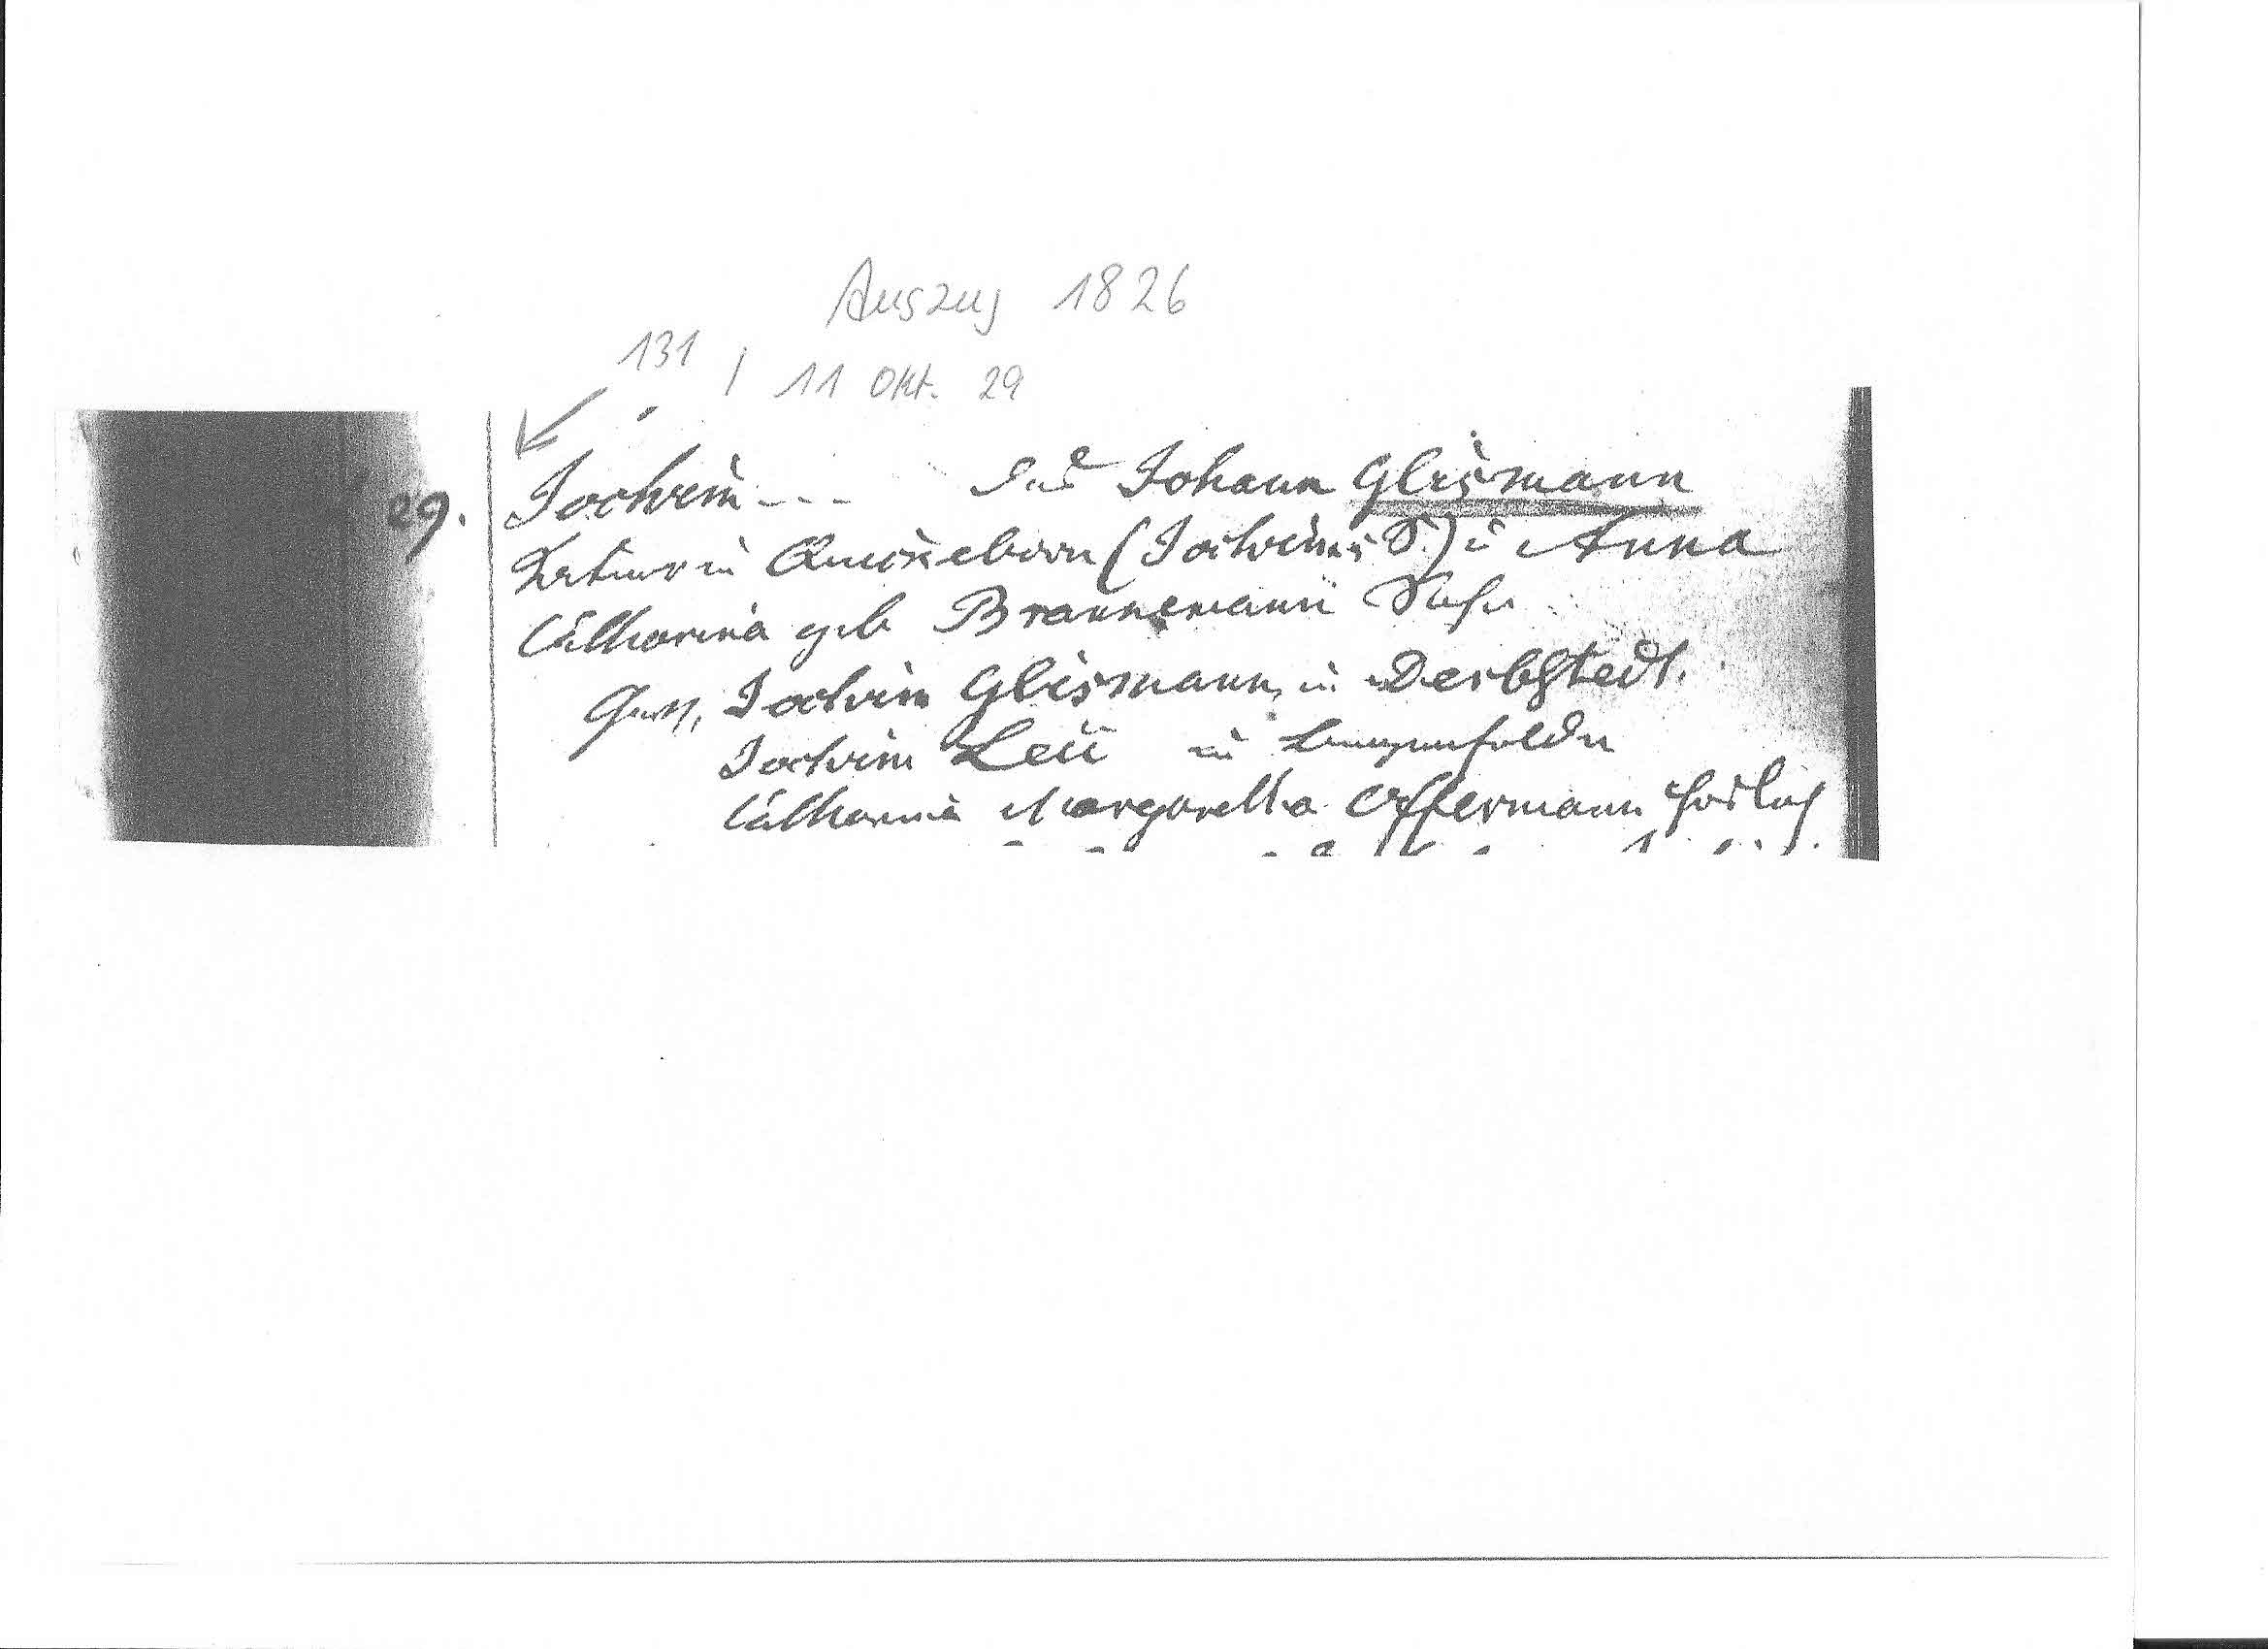 Auszug 1826
131 / 11 Okt. 29
29. Jochim --- Des Johann Glismann
in Quickeborn (Jochims S.) u Anna
Catharina geb Brannemann Sohn
Gev. Jochim Glismann, in
Jochim Leü in Langenfelde
Catharina Margaretha Offermann